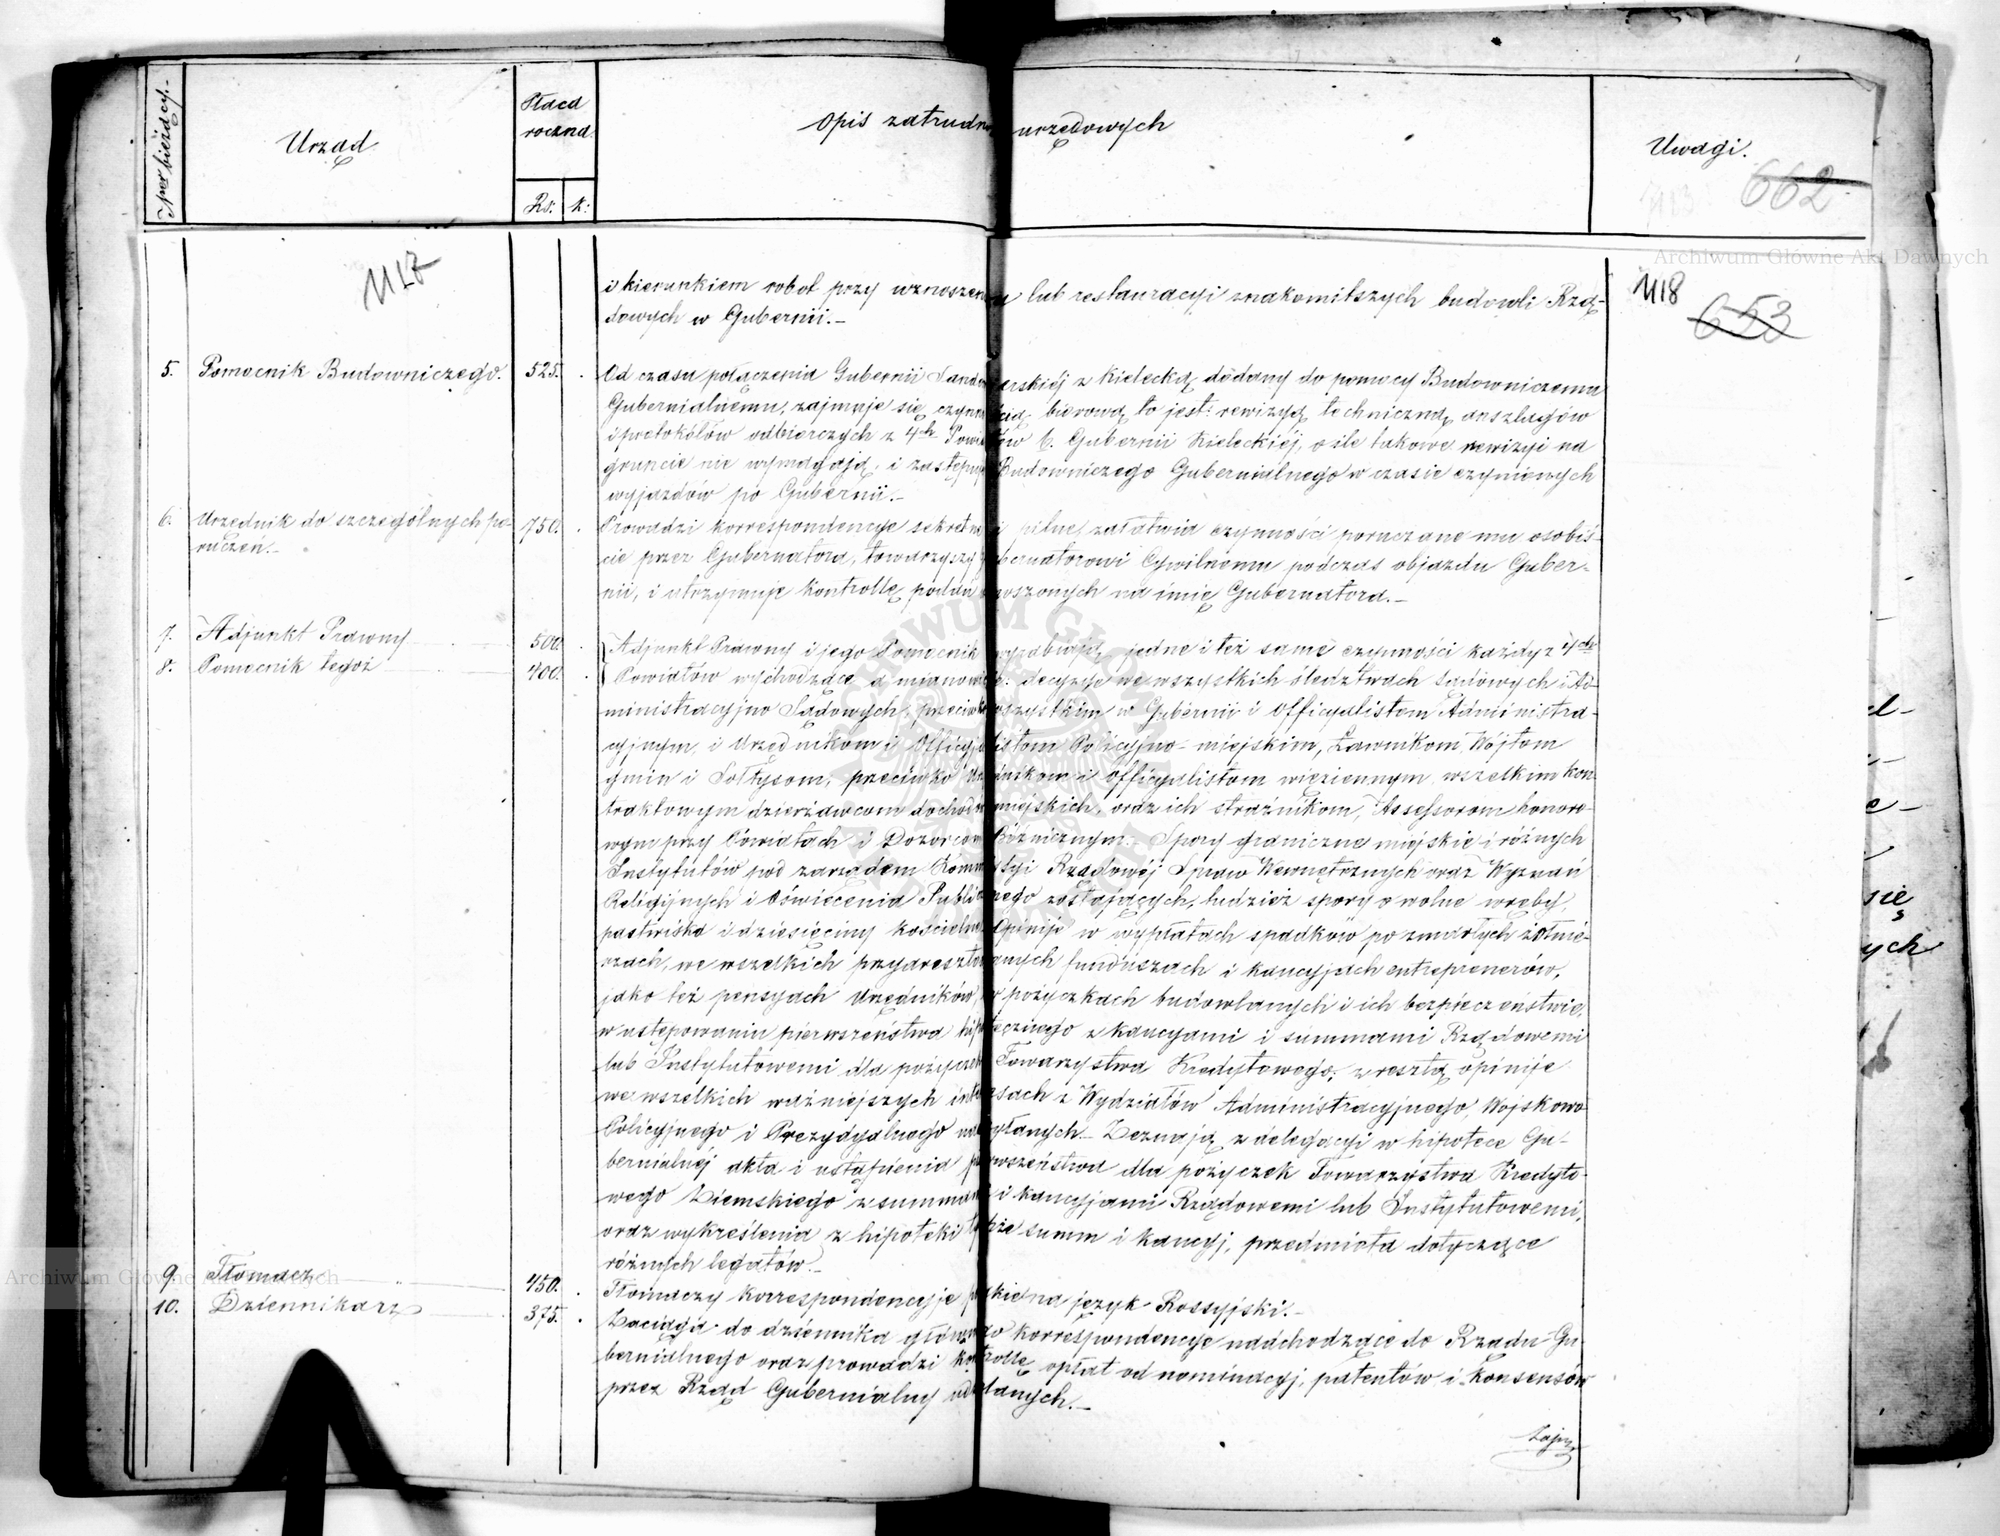 Nmer bieżący.
Urząd
Płaca
roczna
Rs: k:
Opis zatrudn urzędowych
Uwagi.
662
1117
1118
653
Archiwum Główne Akt Dawnych
i kierunkiem robót przy wznoszeniu lub restauracyi znakomitszych budowli Rzą-
dowych w Gubernii.–
5. Pomocnik Budowniczego. 525. .
Od czasu połączenia Gubernii Sandomierskiéj z Kielecką dodany do pomocy Budowniczemu
Gubernialnemu, zajmuje się czynnością biórową to jest: rewizyą techniczną anszlagów
i protokółów odbiorczych z 4ch Powiatów b. Gubernii Kieleckiéj, o ile takowe rewizyi na
gruncie nie wymagają; i zastępuje Budowniczego Gubernialnego w czasie czynionych
wyjazdów po Gubernii.–
6. Urzędnik do szczególnych po-
ruczeń.– 750. .
Prowadzi korrespondencye sekretne i pilne, załatwia czynności poruczane mu osobiś-
cie przez Gubernatora, towarzyszy Gubernatorowi Cywilnemu podczas objazdu Guber-
nii, i utrzymuje kontrollę podań wnoszonych na imię Gubernatora.–
7. Adjunkt Prawny 500. .
8. Pomocnik tegoż 400. .
Adjunkt Prawny i jego Pomocnik wyrabiają jedne i też same czynności każdy z 4ch
Powiatów wychodzące a mianowicie: decyzye we wszystkich śledztwach Sądowych i Ad-
ministracyjno Sądowych, przeciwko wszystkim w Gubernii i Officyalistom Administra-
cyjnym, i Urzędnikom i Officyalistom Policyjno-miejskim, Ławnikom, Wójtom
gmin i Sołtysom, przeciwko Urzędnikom i officyalistom więziennym, wszelkim kon-
traktowym dzierżawcom dochodów miejskich, oraz ich strażnikom, Assessorom honoro-
wym przy Powiatach i Dozorcom Bóżnicznym. Spory graniczne miejskie i różnych
Instytutów pod zarządem Kommissyi Rządowéj Spraw Wewnętrznych oraz Wyznań
Religijnych i Oświecenia Publicznego zostających, tudzież spory o wolne wręby,
pastwiska i dziesięciny kościelne. Opinije w wypłatach spadków po zmarłych żołnie-
rzach, we wszelkich przyaresztowanych funduszach i kaucyjach entreprenerów,
jako też pensyach Urzędników, w pożyczkach budowlanych i ich bezpieczeństwie,
w ustępowaniu pierwszeństwa hipotecznego z kaucyami i summami Rządowemi
lub Instytutowemi dla pożyczek Towarzystwa Kredytowego; zresztą opinije
we wszelkich ważniejszych interesach z Wydziałów Administracyjnego, Wojskowo
Policyjnego i Prezydyalnego nadsyłanych.– Zeznają z delegacyi w hipotece Gu-
bernialnéj akta i ustąpienia pierwszeństwa dla pożyczek Towarzystwa Kredyto-
wego Ziemskiego z summami i kaucyjami Rządowemi lub Instytutowemi,
oraz wykreślenia z hipoteki tychże summ i kaucyj, przedmiota dotyczące
różnych legatów.–
9. Tłomacz 450. .
Tłomaczy korrespondencyje polskie na język Rossyjski.–
10. Dziennikarz 375. .
Zaciąga do dziennika głównego korrespondencye nadchodzące do Rządu Gu-
bernialnego oraz prowadzi kontrollę opłat od nominacyj, patentów i konsensów
przez Rząd Gubernialny udzielanych.–
Archiwum Główne Akt Dawnych